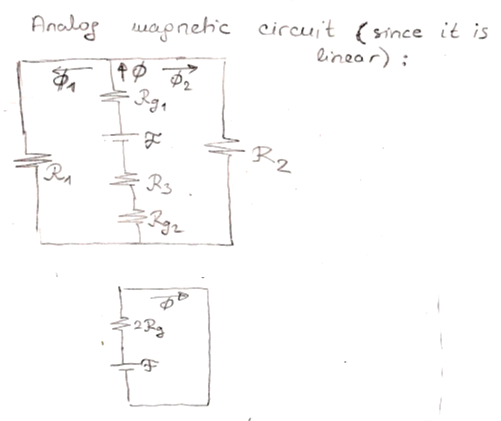 Analog magnetic circuit (since it is
linear) :
ϕ1 ϕ ϕ2
Rg1
F
R1 R3 R2
Rg2
ϕ
2Rg
F